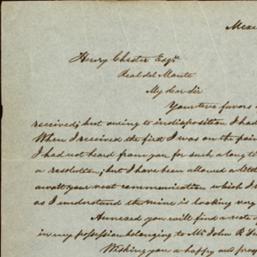 Mexi
Henry Chester Esqr.
Real del Monte
My dear sir
Your two favors
received; but owing to indisposition I had
When I received the first I was on the poin
I had not heard from you for such a long ti
a resolution; but I have been allowed a litt
await your next communication which I t
as I understood the mine is looking very
Annexed you will find a note
in my possession belonging to Mr John R.
Wishing you a happy and pros